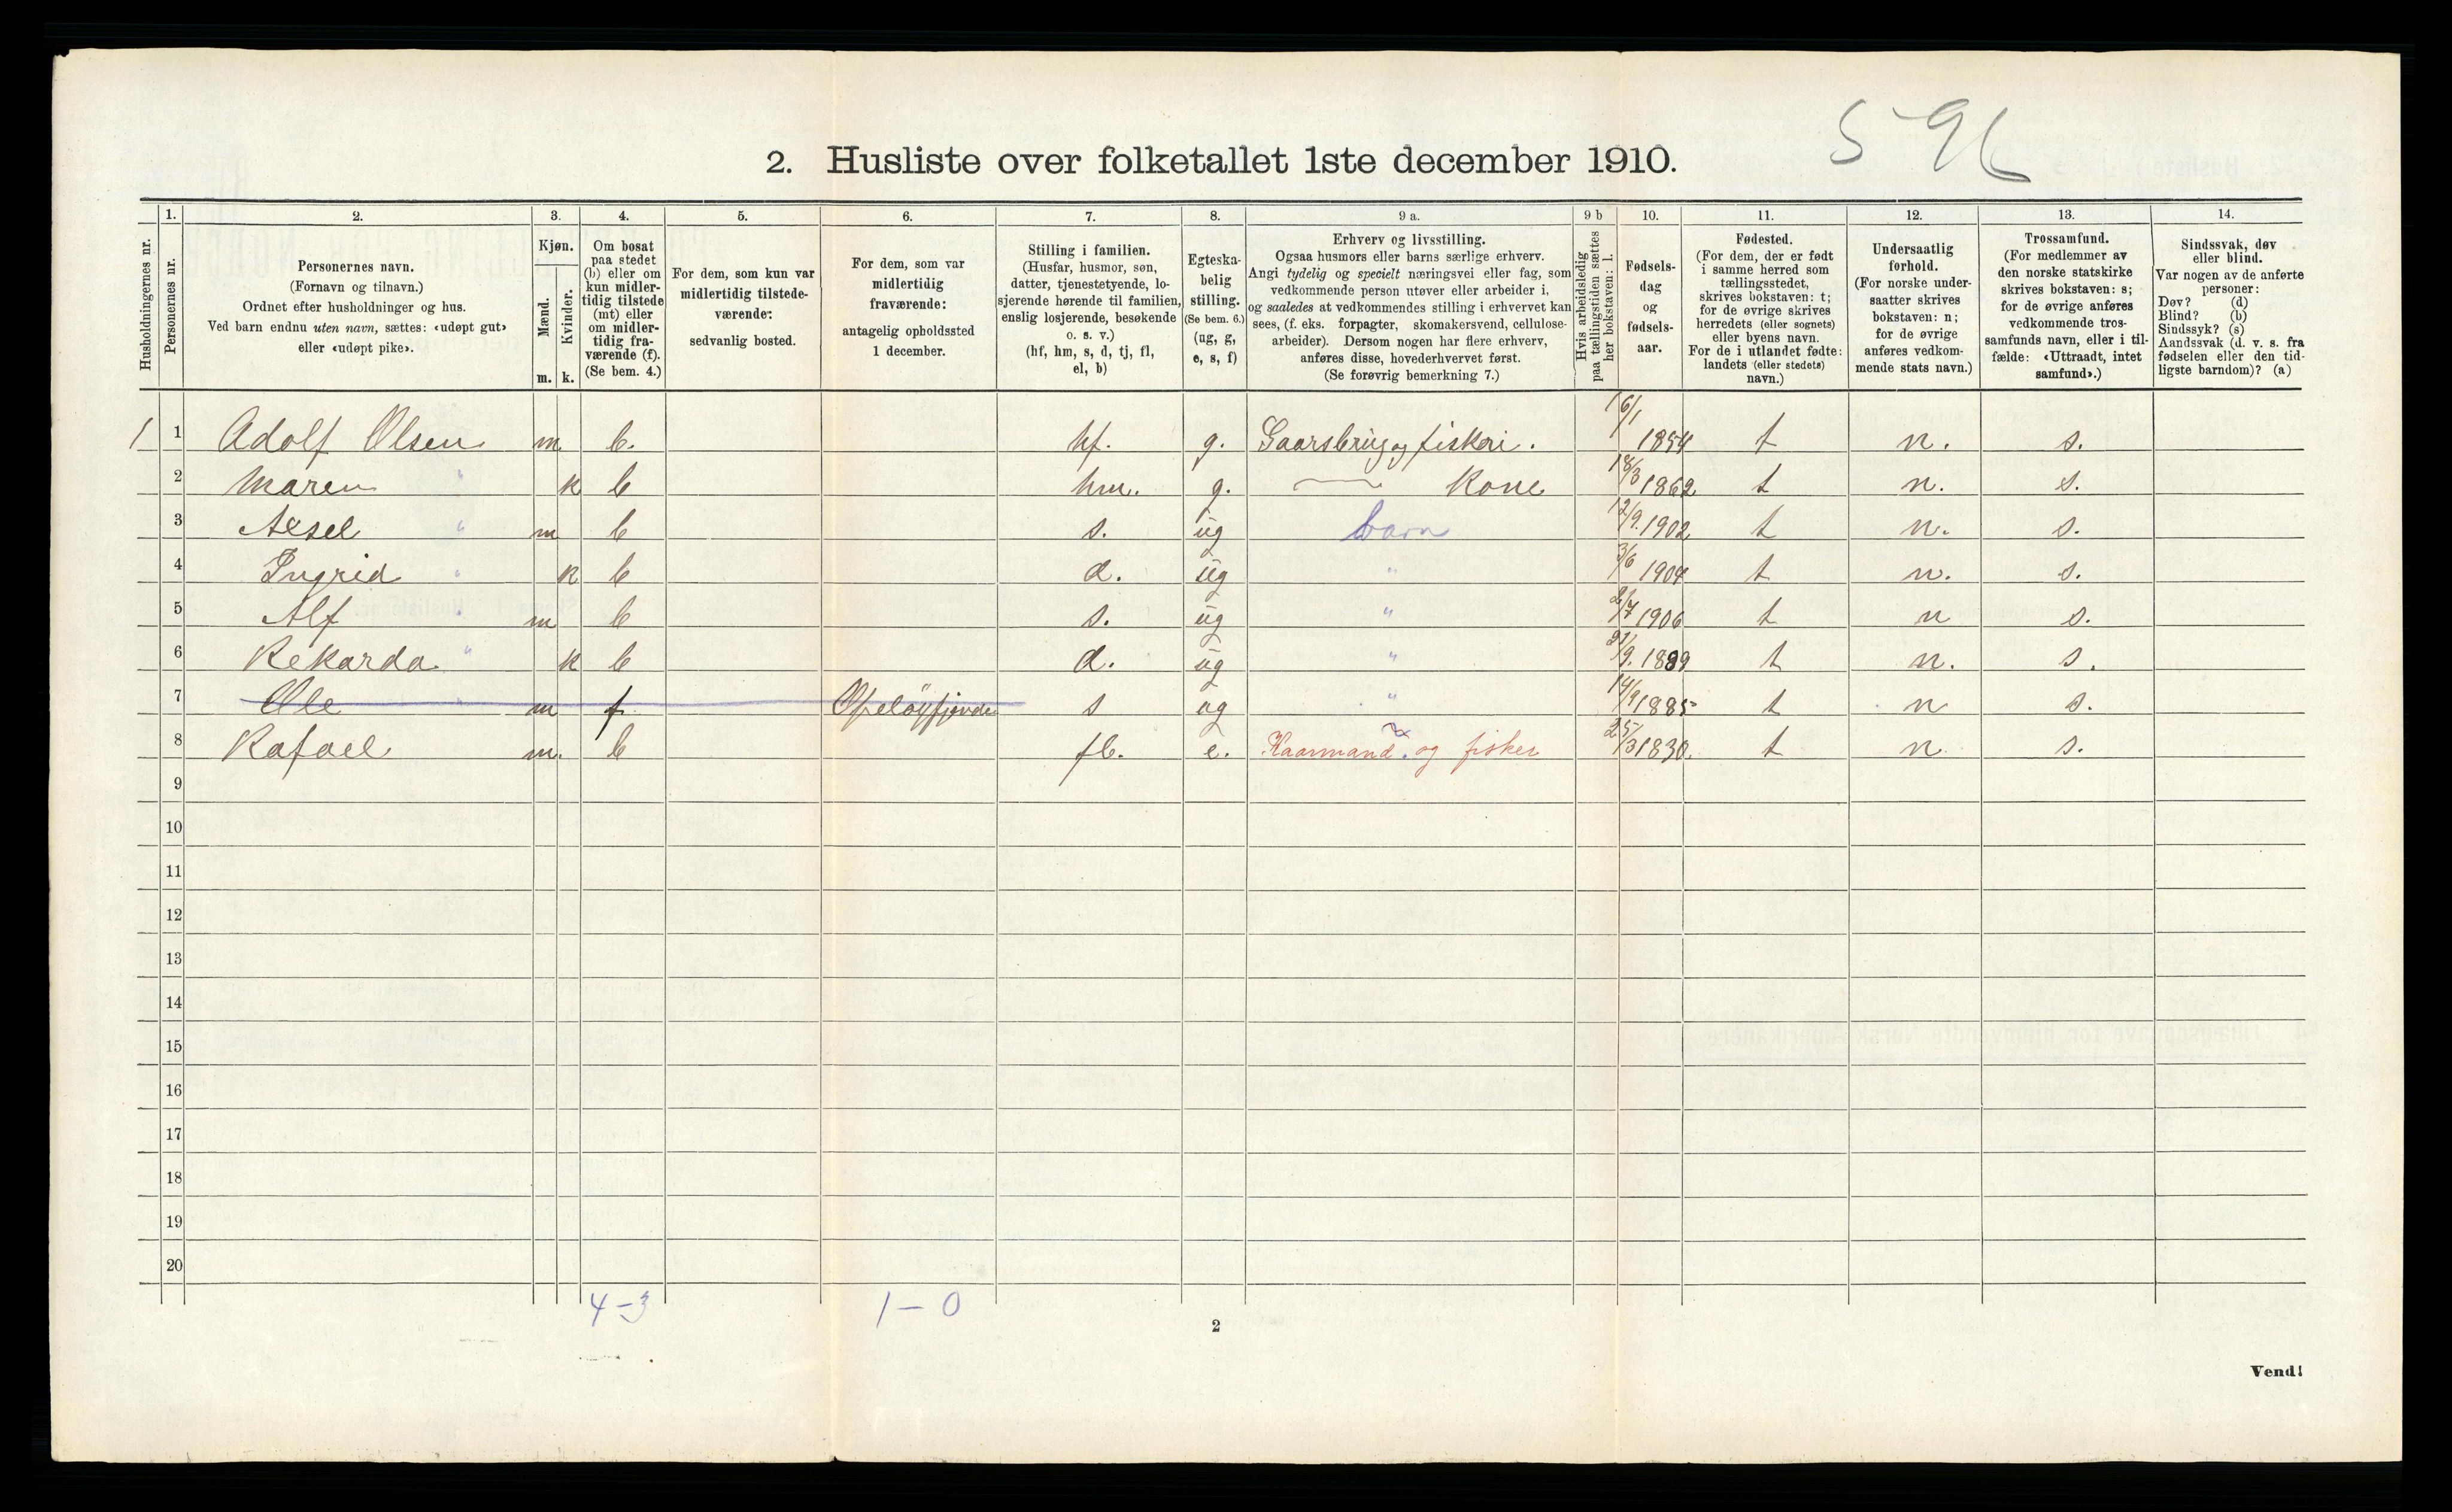 596
2. Husliste over folketallet 1ste december 1910.
Husholdningernes nr.
1.
Personernes nr.
2.
Personernes navn.
(Fornavn og tilnavn.)
Ordnet efter husholdninger og hus.
Ved barn endnu uten navn, sættes: «udøpt gut»
eller «udøpt pike».
3.
Kjøn.
Mænd.
Kvinder.
m. k.
4.
Om bosat
paa stedet
(b) eller om
kun midler-
tidig tilstede
(mt) eller
om midler-
tidig fra-
værende (f).
(Se bem. 4.)
5.
For dem, som kun var
midlertidig tilstede-
værende:
sedvanlig bosted.
6.
For dem, som var
midlertidig
fraværende:
antagelig opholdssted
1 december.
7.
Stilling i familien.
(Husfar, husmor, søn,
datter, tjenestetyende, lo-
sjerende hørende til familien,
enslig losjerende, besøkende
o. s. v.)
(hf, hm, s, d, tj, fl,
el, b)
8.
Egteska-
belig
stilling.
(Se bem. 6.)
(ug, g,
e, s, f)
9 a.
Erhverv og livsstilling.
Ogsaa husmors eller barns særlige erhverv.
Angi tydelig og specielt næringsvei eller fag, som
vedkommende person utøver eller arbeider i,
og saaledes at vedkommendes stilling i erhvervet kan
sees, (f. eks. forpagter, skomakersvend, cellulose-
arbeider). Dersom nogen har flere erhverv,
anføres disse, hovederhvervet først.
(Se forøvrig bemerkning 7.)
9 b
Hvis arbeidsledig
paa tællingstiden sættes
her bokstaven: l.
10.
Fødsels-
dag
og
fødsels-
aar.
11.
Fødested.
(For dem, der er født
i samme herred som
tællingsstedet,
skrives bokstaven: t;
for de øvrige skrives
herredets (eller sognets)
eller byens navn.
For de i utlandet fødte:
landets (eller stedets)
navn.)
12.
Undersaatlig
forhold.
(For norske under-
saatter skrives
bokstaven: n;
for de øvrige
anføres vedkom-
mende stats navn.)
13.
Trossamfund.
(For medlemmer av
den norske statskirke
skrives bokstaven: s;
for de øvrige anføres
vedkommende tros-
samfunds navn, eller i til-
fælde: «Uttraadt, intet
samfund».)
14.
Sindssvak, døv
eller blind.
Var nogen av de anførte
personer:
Døv? (d)
Blind? (b)
Sindssyk? (s)
Aandssvak (d. v. s. fra
fødselen eller den tid-
ligste barndom)? (a)
1 1 Adolf Olsen m b. hf. g. Gaarsbrug og fiskeri. 16/1 1854 t n. s.
2 Maren " k b hm. g. — Kone 18/3 1862 t n. s.
3 Aksel " m b s. ug barn 12/9. 1902 t n. s.
4 Ingrid " k b d. ug " 3/6 1904 t n. s.
5 Alf " m b s. ug " 1906 t n s.
6 Rekarda " k b d. ug " 1889 t n. s.
7 Ole " m f s ug " 14/9 1885 t n s.
8 Rafael m. b fl. e. Kaarmand og fisker 25/3 1830. t n s.
9
10
11
12
13
14
15
16
17
18
19
20
4-3 1-0
2
Vend!